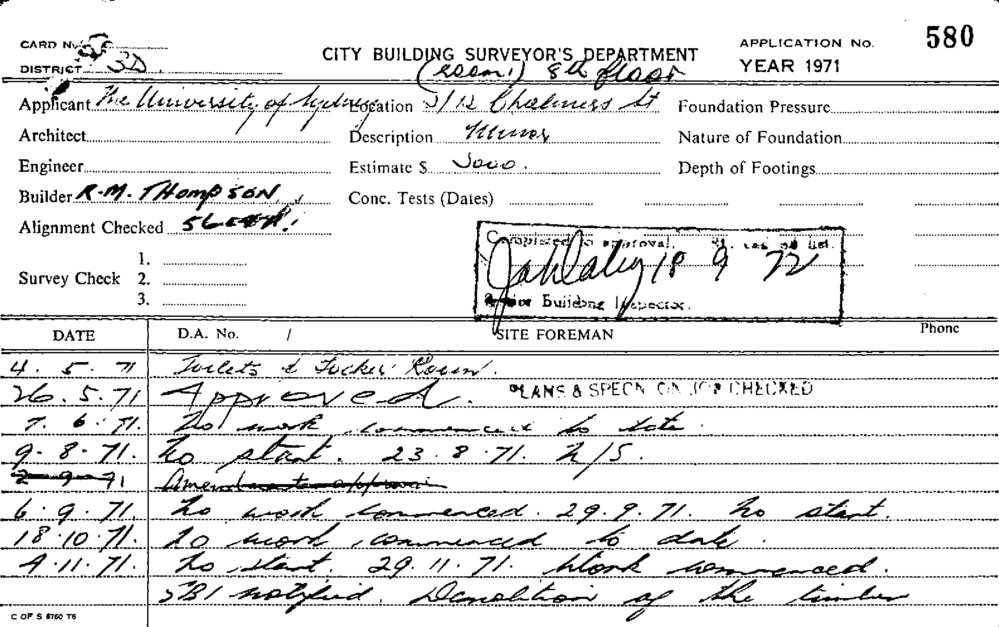 CARD No.
CITY BUILDING SURVEYOR'S DEPARTMENT
APPLICATION No. 580
DISTRICT 3D.
(Room 1) 8th floor
YEAR 1971
Applicant The University of Sydney Location 5/12 Chalmers St Foundation Pressure
Architect Description Minor Nature of Foundation
Engineer Estimate $ 5000. Depth of Footings
Builder R.M. THOMPSON Conc. Tests (Dates)
Alignment Checked
Completed to approval.
Survey Check 1.
2.
3.
18 9 72
Building Inspector.
DATE D.A. No. / SITE FOREMAN Phone
4. 5. 71 Toilets & Locker Room.
26. 5. 71 Approved. PLANS & SPECN ON JOB CHECKED
7. 6. 71. No work commenced to date.
9. 8. 71. No start. 23. 8. 71. N/S.
2-9-71 Amendments approval
6. 9. 71. No work commenced. 29. 9. 71. No start.
18. 10. 71. No work commenced to date.
9. 11. 71. No start. 29. 11. 71. Work commenced.
SBI notified. Demolition of the timber
C OF S 6760 T6